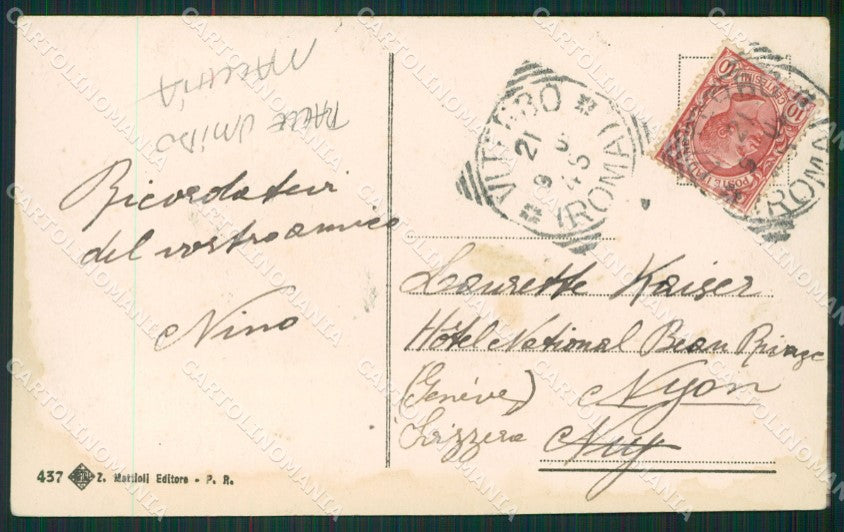 MACCHIA
Ricordatevi
del vostro amico
Nino
437 Z. Mattioli Editore - P. R.
VITERBO
(ROMA)
21
9
Laurette Kaiser
Hôtel National Beau Rivage
(Genève) Nyon
Svizzera Nuy
CARTOLINOMANIA